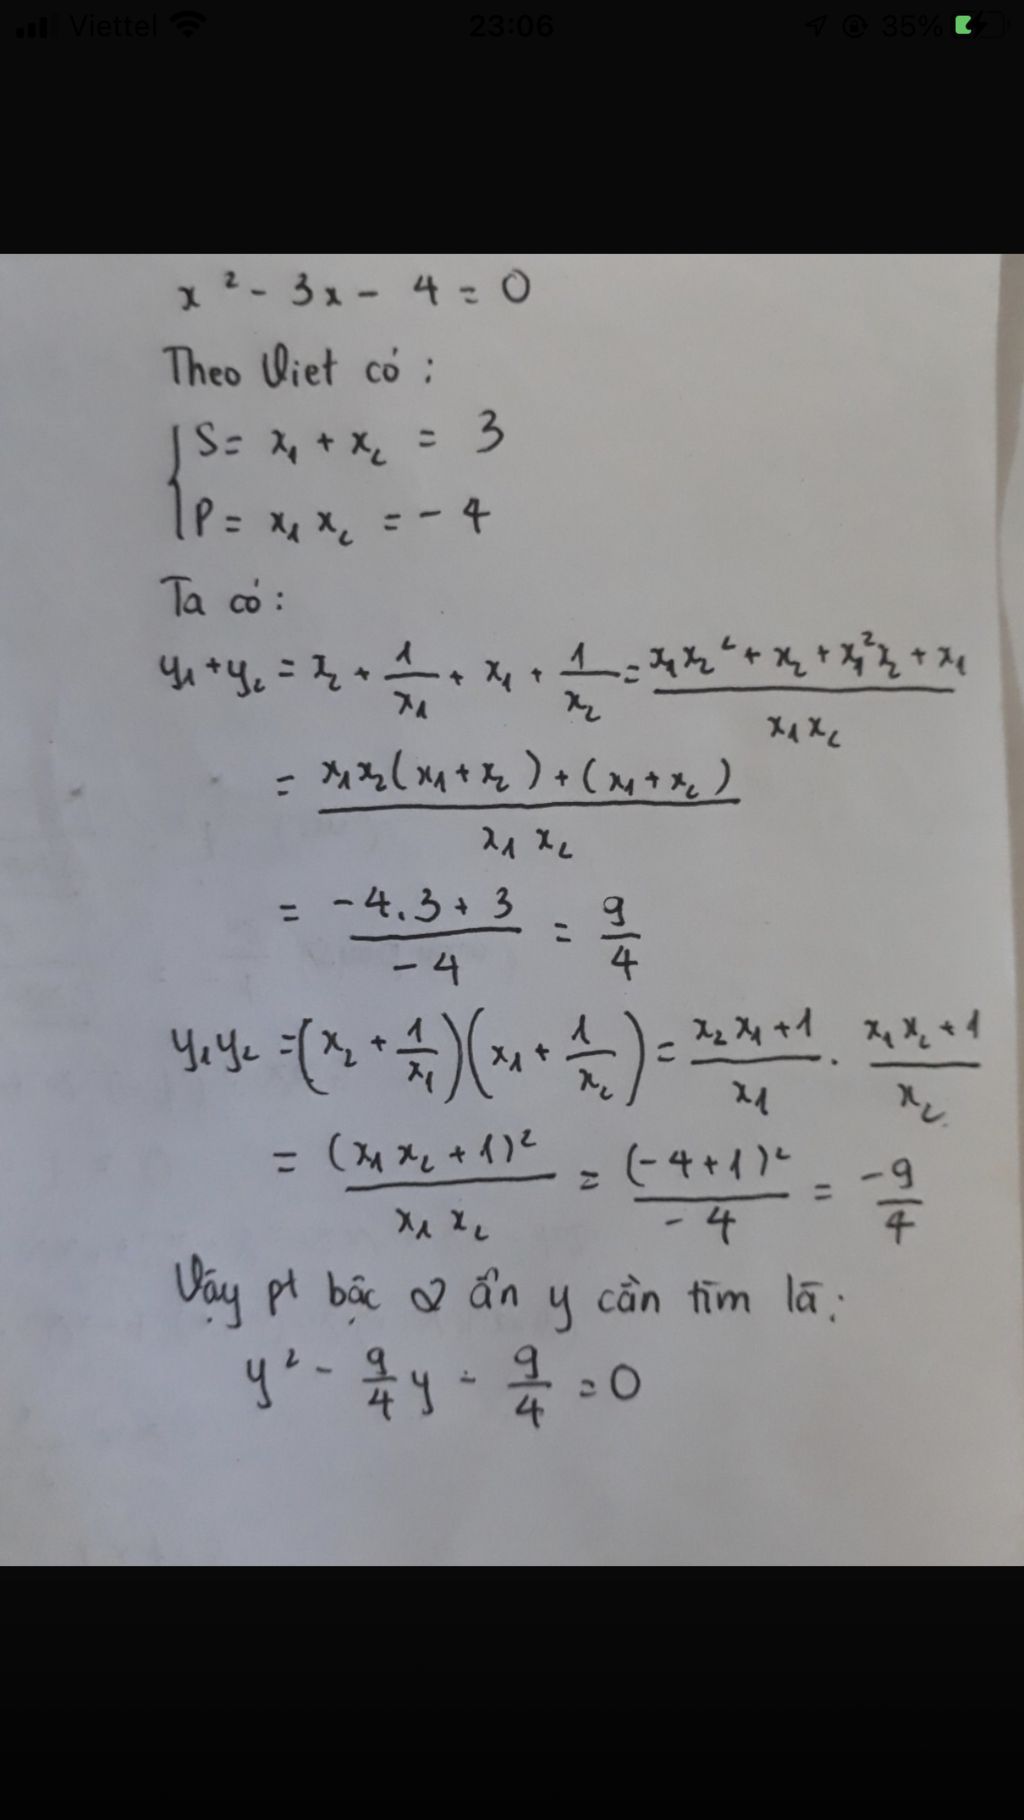 Viettel 23:06 35%
x² - 3x - 4 = 0
Theo Viet có :
S = x₁ + x₂ = 3
P = x₁ x₂ = - 4
Ta có :
y₁ + y₂ = x₂ + 1/x₁ + x₁ + 1/x₂ = (x₁x₂² + x₂ + x₁²x₂ + x₁)/(x₁x₂)
= (x₁x₂(x₁ + x₂) + (x₁ + x₂))/(x₁ x₂)
= (-4.3 + 3)/(-4) = 9/4
y₁y₂ = (x₂ + 1/x₁)(x₁ + 1/x₂) = (x₂x₁ + 1)/x₁ . (x₁x₂ + 1)/x₂
= (x₁x₂ + 1)²/(x₁ x₂) = (-4 + 1)²/(-4) = -9/4
Vậy pt bậc 2 ẩn y cần tìm là :
y² - 9/4 y - 9/4 = 0